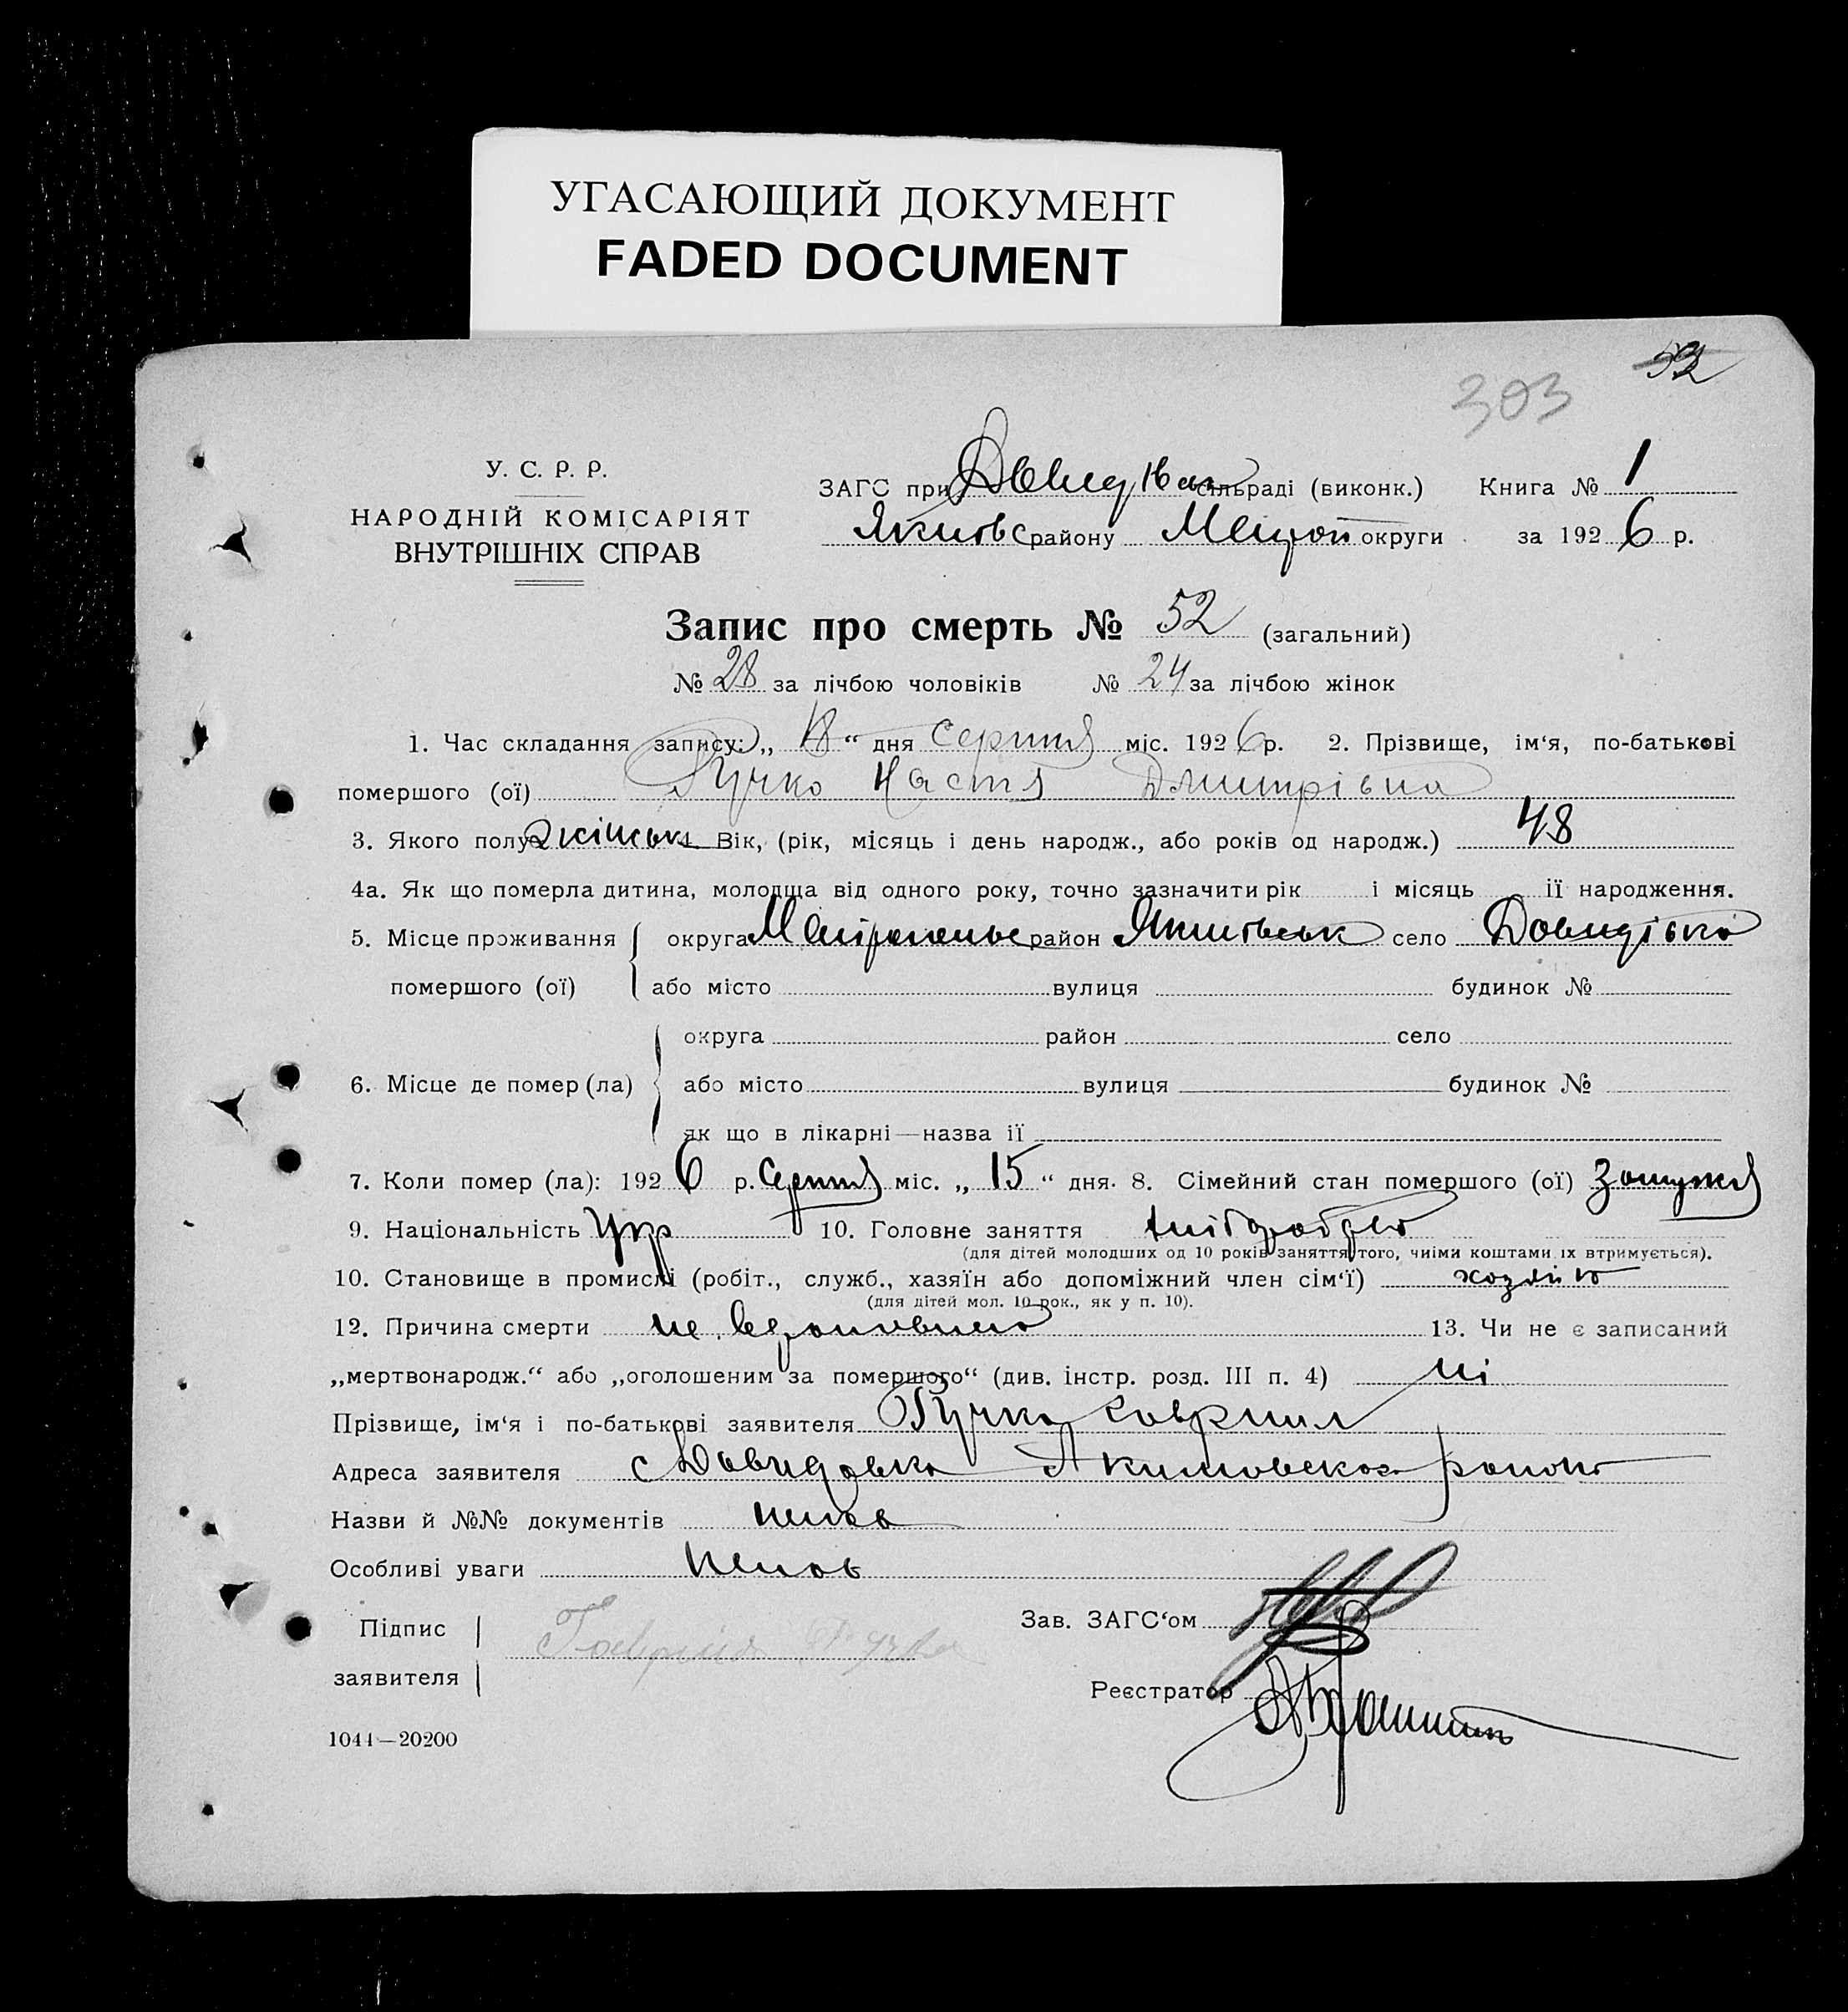 УГАСАЮЩИЙ ДОКУМЕНТ
FADED DOCUMENT
52
303
У. С. Р. Р.
НАРОДНІЙ КОМІСАРІЯТ
ВНУТРІШНІХ СПРАВ
ЗАГС при сільраді (виконк.) Книга № 1
району округи за 1926 р.
Запис про смерть № 52 (загальний)
№ 28 за лічбою чоловіків № 24 за лічбою жінок
1. Час складання запису: „ 18 “ дня серпня міс. 1926 р. 2. Прізвище, ім‘я, по-батькові
помершого (ої) Ручко Настя Дмитрівна
3. Якого полу жіноч 4. Вік, (рік, місяць і день народж., або років од народж.) 48
4а. Як що померла дитина, молодща від одного року, точно зазначити рік і місяць її народження.
5. Місце проживання округа район село Довидівка
помершого (ої) або місто вулиця будинок №
округа район село
6. Місце де помер (ла) або місто вулиця будинок №
як що в лікарні—назва її
7. Коли помер (ла): 1926 р. серпня міс. „ 15 “ дня. 8. Сімейний стан помершого (ої) замужня
9. Національність Укр 10. Головне заняття
(для дітей молодших од 10 років заняття того, чиіми коштами їх втримується).
10. Становище в промислі (робіт., служб., хазяїн або допоміжний член сім‘ї)
(для дітей мол. 10 рок., як у п. 10).
12. Причина смерти не 13. Чи не є записаний
„мертвонародж.“ або „оголошеним за помершого“ (див. інстр. розд. III п. 4) ні
Прізвище, ім‘я і по-батькові заявителя Ручко Гавриил
Адреса заявителя с Давидовка Акимовского района
Назви й №№ документів немає
Особливі уваги немає
Підпис Гавриил Ручка Зав. ЗАГС‘ом
заявителя Реєстратор
1044—20200